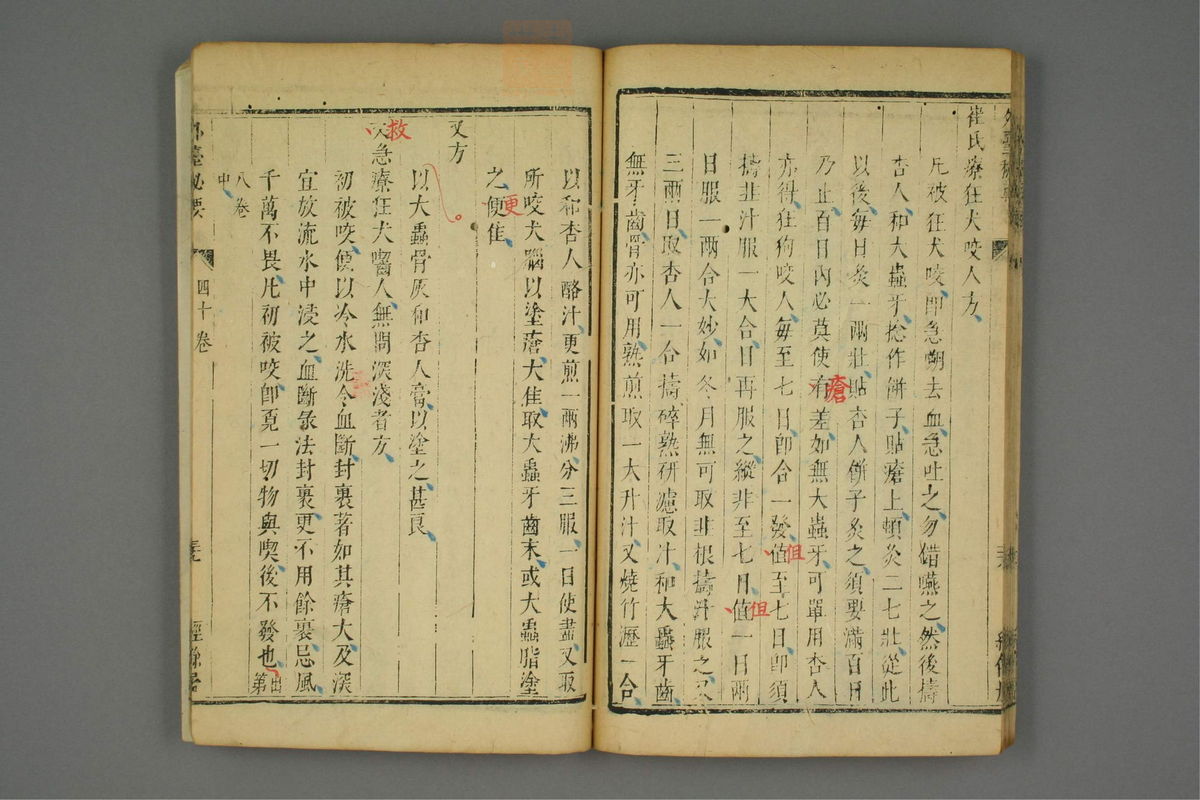 崔氏療狂犬咬人方
凡被狂犬咬即急嗍去血急吐之勿錯嚥之然後擣
杏人和大蟲牙捻作餅子貼瘡上頓灸二七壯從此
以後每日灸一兩壯貼杏人餅子灸之須要滿百日
乃止百日內必莫使有差如無大蟲牙可單用杏人
瘡
亦得狂狗咬人每至七日即合一發值至七日即須
但
擣韭汁服一大合日再服之縱非至七日值一日兩
但
日服一兩合大妙如冬月無可取韭根擣汁服之又
三兩日取杏人一合擣碎熟研濾取汁和大蟲牙齒
無牙齒骨亦可用熟煎取一大升汁又燒竹瀝一合
以和杏人酪汁更煎一兩沸分三服一日使盡又取
所咬犬腦以塗瘡大佳取大蟲牙齒末或大蟲脂塗
之便佳
更
又方
以大蟲骨灰和杏人膏以塗之甚良
又急療狂犬嚙人無問深淺者方
救
初被咬便以冷水洗令血斷封裹著如其瘡大及深
宜放流水中浸之血斷彖法封裹更不用餘裹忌風
千萬不畏凡初被咬即覓一切物與喫後不發也出第
八卷中
外臺秘要
四十卷
經餘居